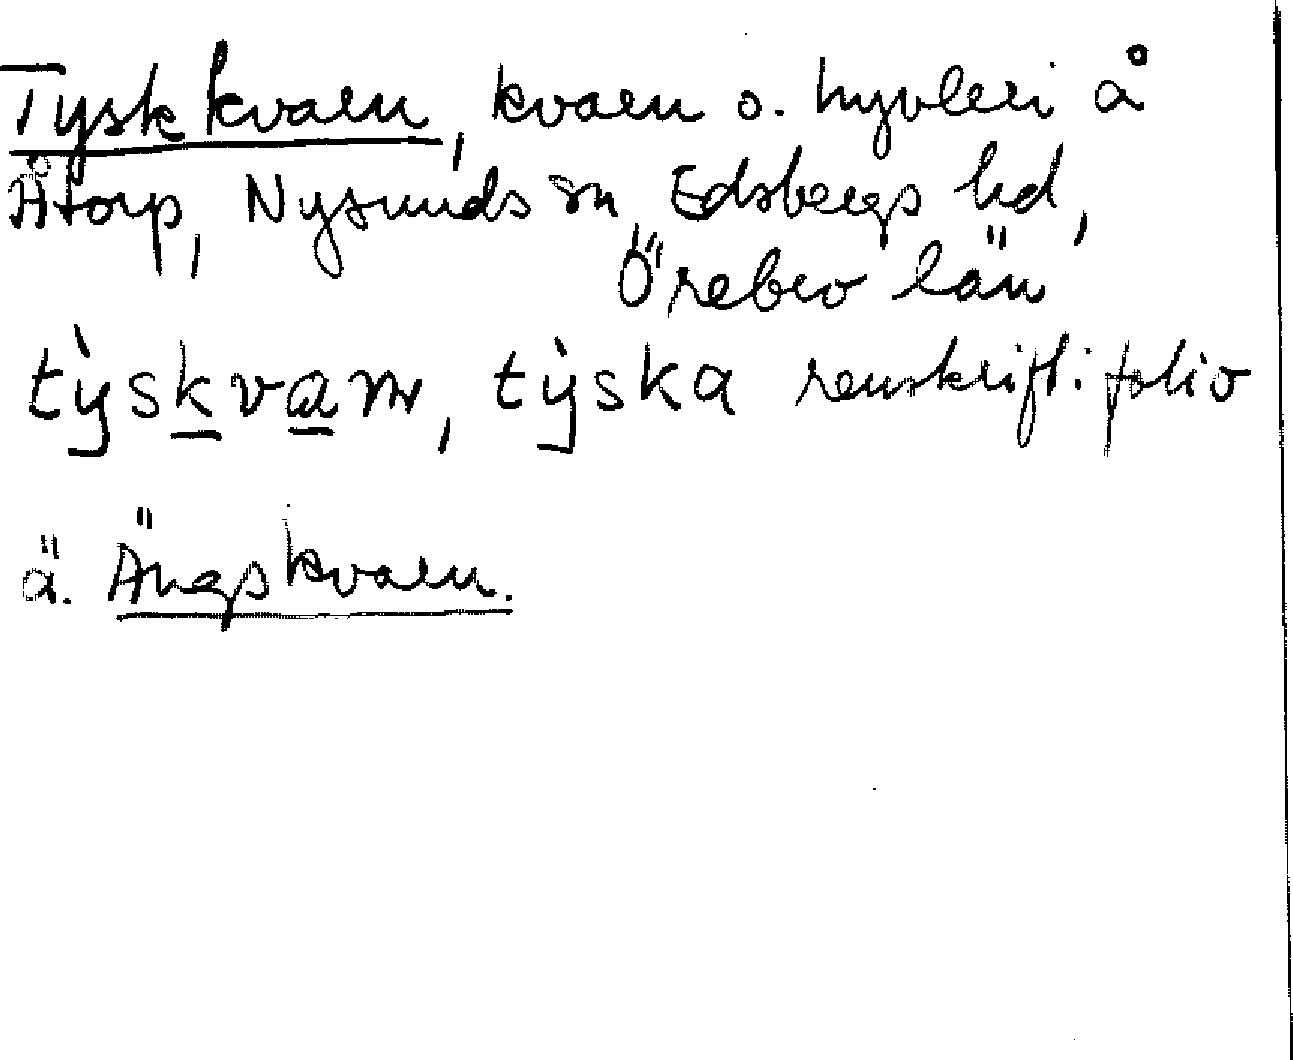 Tyskkvarn, kvarn o. hyvleri å
Åtorp, Nysunds sn, Edsbergs hd,
Örebro län
tỳskvaɳ, tỳska renskrift i folio
ä. Ängskvarn.